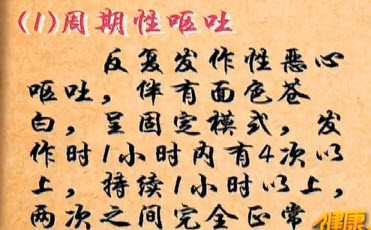 (1)周期性呕吐
反复发作性恶心
呕吐，伴有面色苍
白，呈固定模式，发
作时1小时内有4次以
上，持续1小时以上，
两次之间完全正常
健康